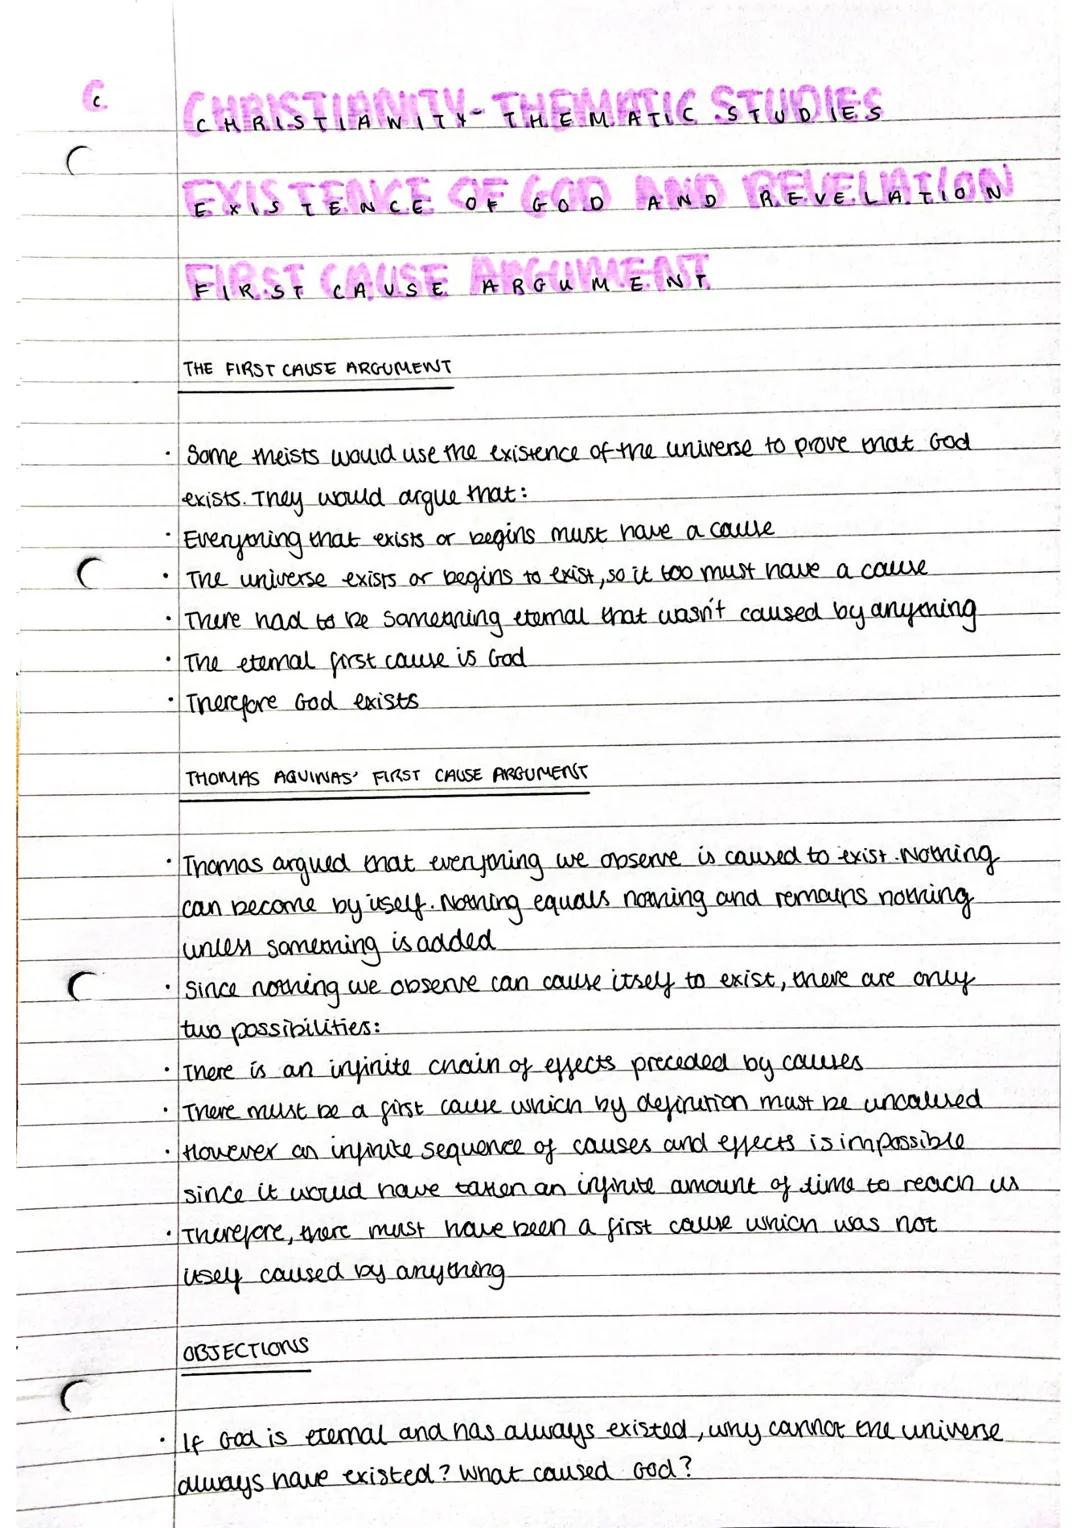 C
CHRISTIANITY - THEMATIC STUDIES
EXISTENCE OF GOD AND REVELATION
FIRST CAUSE ARGUMENT
THE FIRST CAUSE ARGUMENT
· Some theists would use the existence of the universe to prove that God
exists. They would argue that:
· Everything that exists or begins must have a cause
· The universe exists or begins to exist, so it too must have a cause
· There had to be something eternal that wasn't caused by anything
· The eternal first cause is God
· Therefore God exists
THOMAS AQUINAS' FIRST CAUSE ARGUMENT
· Thomas argued that everything we observe is caused to exist. Nothing
can become by itself. Nothing equals nothing and remains nothing
unless something is added
· Since nothing we observe can cause itself to exist, there are only
two possibilities:
· There is an infinite chain of effects preceded by causes
· There must be a first cause which by definition must be uncaused
· However an infinite sequence of causes and effects is impossible
since it would have taken an infinite amount of time to reach us
· Therefore, there must have been a first cause which was not
itself caused by anything
OBJECTIONS
· If God is eternal and has always existed, why cannot the universe
always have existed? What caused God?